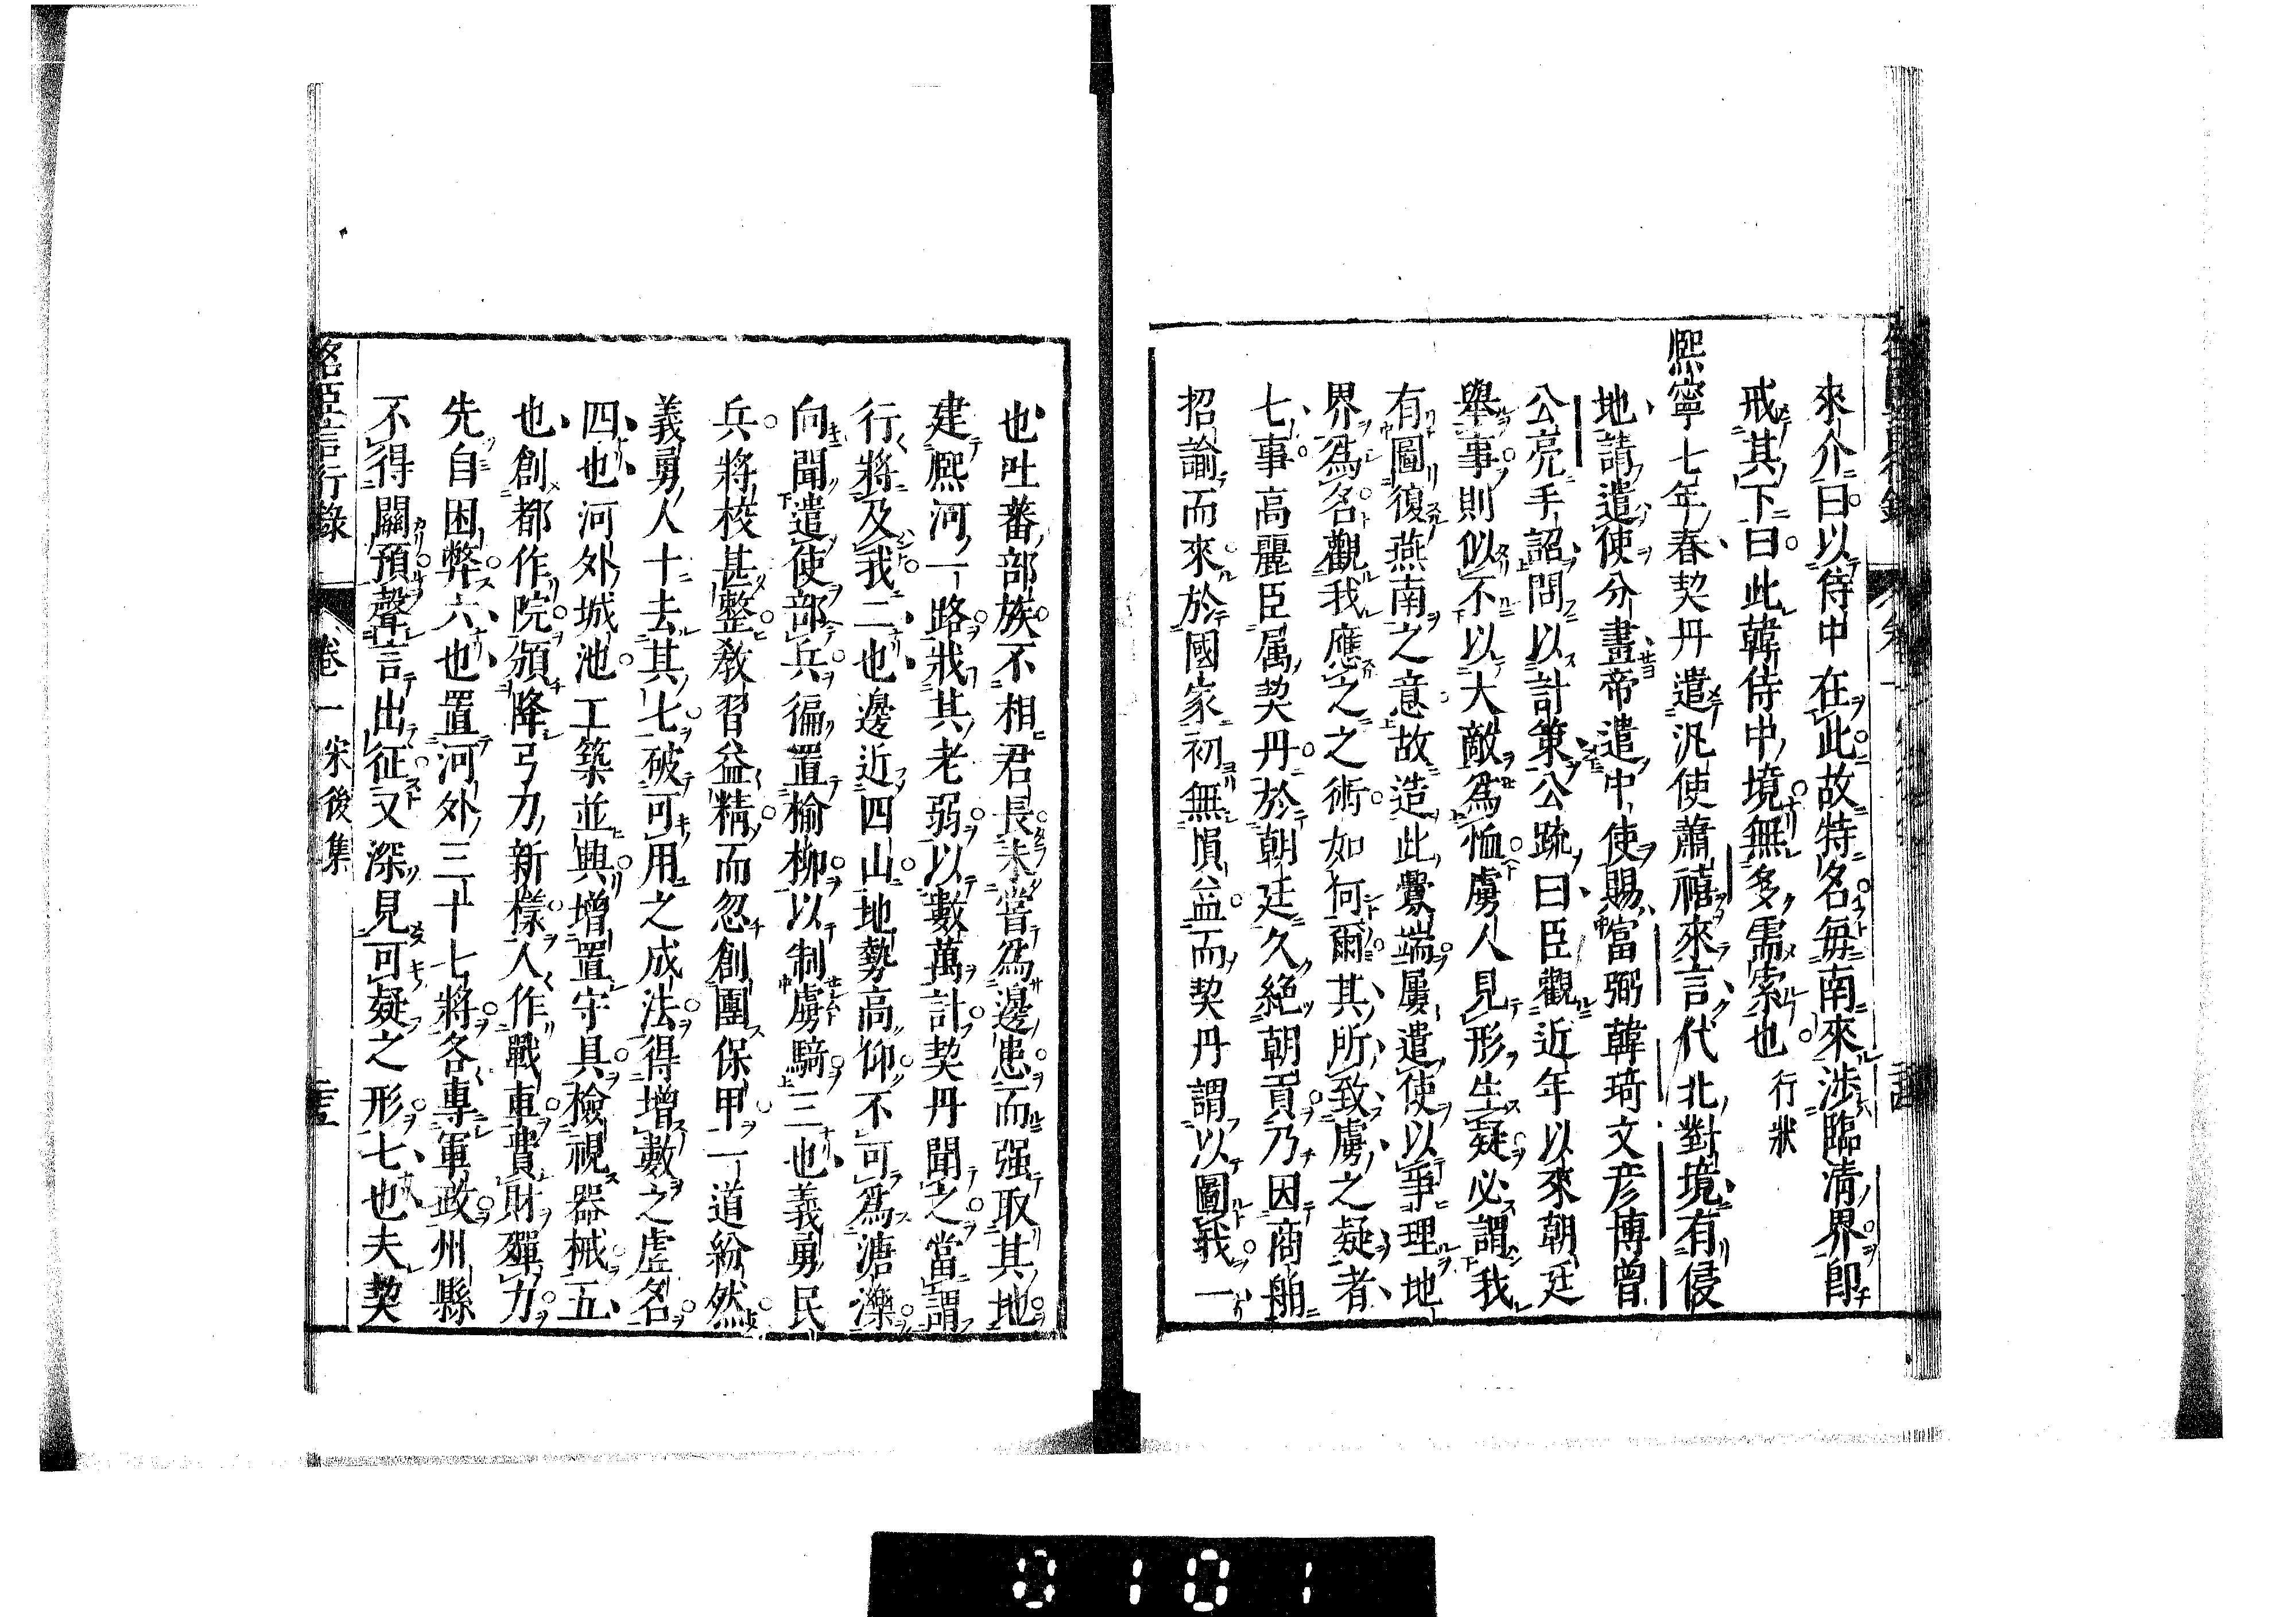 來介曰以侍中在此故特名毎南來涉臨清界即
戒其下曰此韓侍中境無多需索也 行狀
熙寧七年春契丹遣汎使蕭禧來言代北對境有侵
地請遣使分畫帝遣中使賜富弼韓琦文彥博曾
公亮手詔問以計策公疏曰臣觀近年以來朝廷
舉事則似不以大敵爲恤虜人見形生疑必謂我
有圖復燕南之意故造此釁端屢遣使以爭理地
界爲名觀我應之之術如何爾其所致虜之疑者
七事高麗臣属契丹於朝廷久絕朝貢乃因商舶
招諭而來於國家初無損益而契丹謂以圖我一
也吐蕃部族不相君長未嘗爲邊患而强取其地
建熈河一路戕其老弱以數萬計契丹聞之當謂
行將及我二也邊近四山地勢高仰不可爲溏濼
向聞遣使部兵徧置榆柳以制虜騎三也義勇民
兵將校甚整敎習益精而忽創團保甲一道紛然
義勇人十去其七破可用之成法得增數之虛名
四也河外城池工築並興增置守具檢視器械五
也創都作院頒降弓刀新樣人作戰車費財殫力
先自困弊六也置河外三十七將各專軍政州縣
不得關預聲言出征又深見可疑之形七也夫契
名臣言行錄 卷一 宋後集